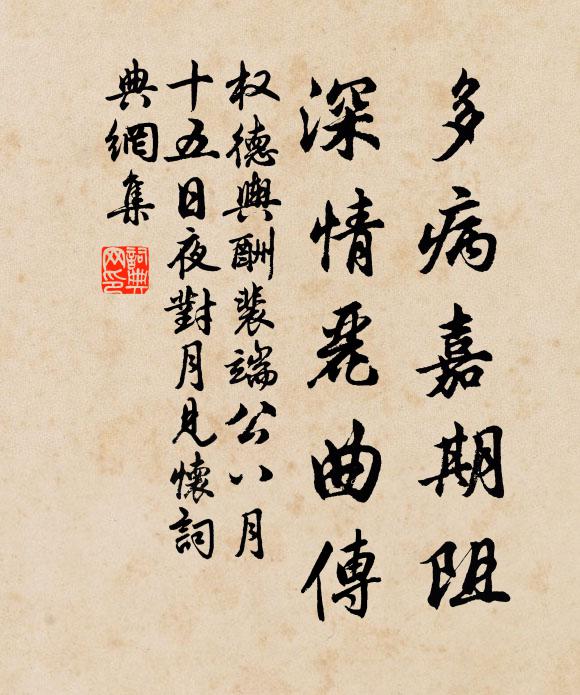 多病嘉期阻
深情麗曲傳
权德輿酬裴端公八月
十五日夜對月見懷詞
典網集
詞典網印